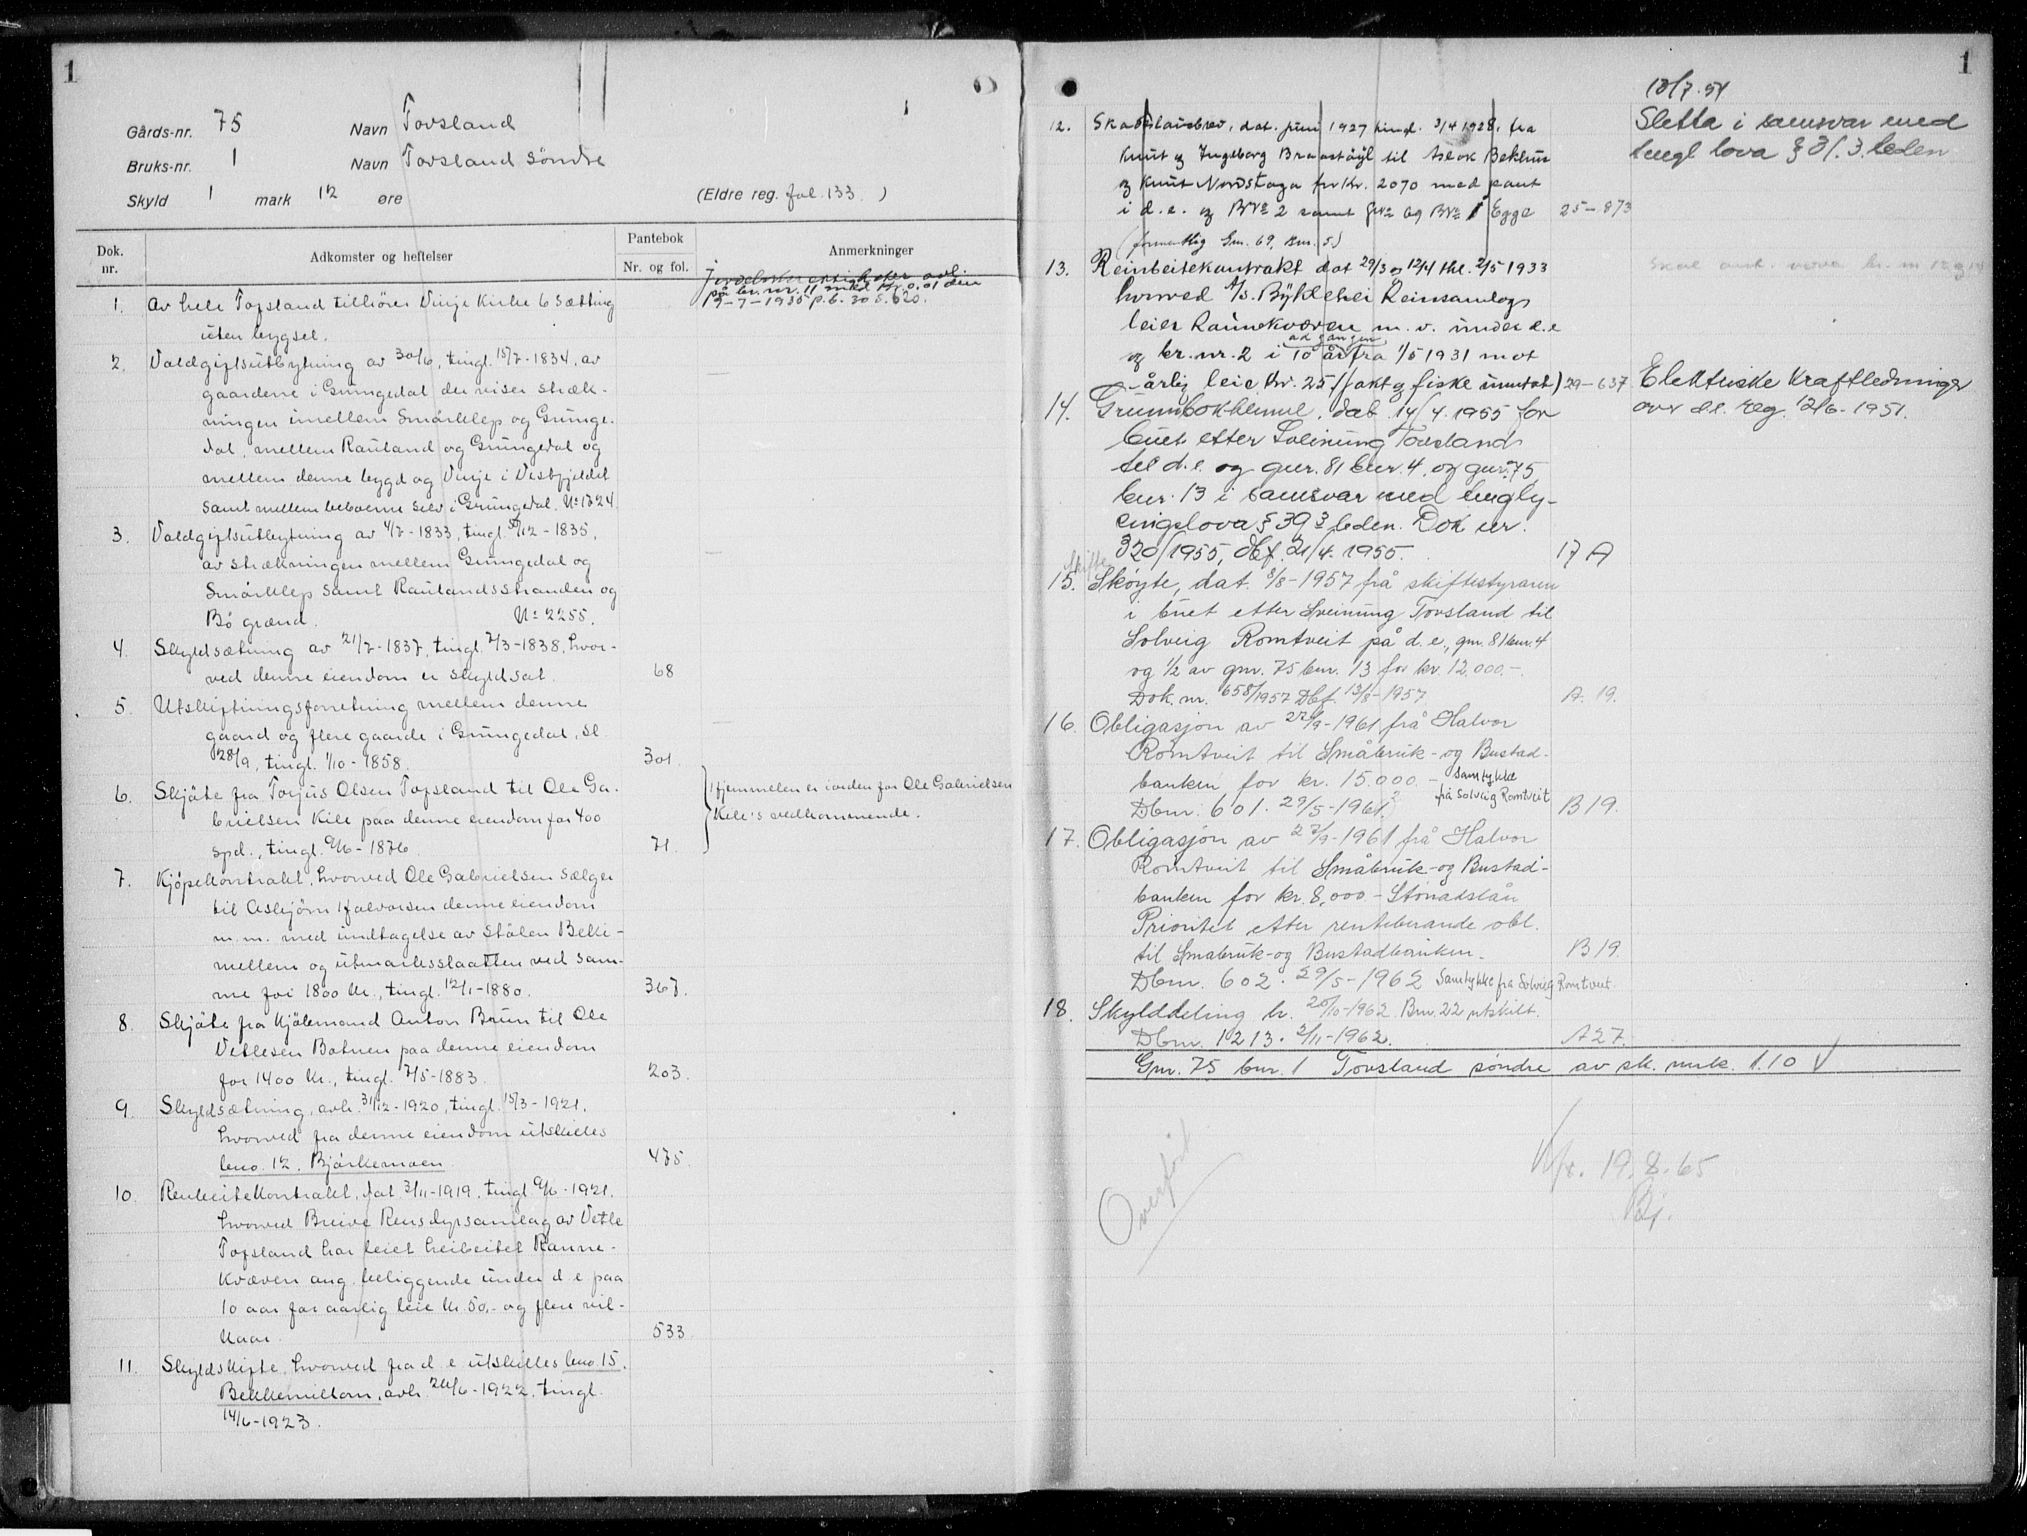 1
Gårds-nr. 75 Navn Tovsland
Bruks-nr. 1 Navn Tovsland söndre
Skyld 1 mark 12 øre (Eldre reg. fol. 133 )
Dok. nr. Adkomster og heftelser Pantebok Nr. og fol. Anmerkninger
på br. nr. 11 mkd kr. 0.01 den
19-7-1935 p.b. 30 s. 620.
1. Av hele Tofsland tilhörer Vinje Kirke 6 sætting
uten bygsel.
2. Voldgiftsutbytning av 30/6, tingl. 15/7-1834, av
gaardene i Grungedal der viser stræk-
ningen imellem Smörklep og Grunge-
dal, mellem Rauland og Grungedal og
mellem denne bygd og Vinje i Vestfjeldet
samt mellem beboerne selv i Grungedal. No 1724
3. Voldgiftsutbytning av 4/7-1833, tingl. /12-1835,
av strækningen mellem Grungedal og
Smörklep samt Raulandsstranden og
Bö grænd. No 2255.
4. Skyldsætning av 21/7-1837, tingl. 7/3-1838, hvor-
ved denne eiendom er skyldsat. 68
5. Utskiftningsforretning mellem denne
gaard og flere gaarde i Grungedal, sl.
28/9, tingl. 1/10-1858. 301.
6. Skjöte fra Torjus Olsen Tofsland til Ole Ga-
brielsen Kile paa denne eiendom for 400
spd., tingl. 9/6-1876 71.
Hjemmelen er iorden for Ole Gabrielsen
Kile's vedkommende.
7. Kjöpekontrakt, hvorved Ole Gabrielsen sælger
til Asbjörn Halvorsen denne eiendom
m.m. med undtagelse av Stölen Bekke-
mellem og utmarksslaatten ved sam-
me for 1800 kr., tingl. 12/1-1880. 367.
8. Skjöte fra Kjöbmand Anton Bruun til Ole
Vetlesen Botnen paa denne eiendom
for 1400 kr., tingl. 7/5-1883. 203.
9. Skyldsætning, avh. 31/12-1920, tingl. 15/3-1921,
hvorved fra denne eiendom utskilles
bno. 12, Björkemoen. 475.
10. Renbeitekontrakt, dat 3/11-1919, tingl. 9/6-1921,
hvorved Breive Rensdyrsamlag av Vetle
Tofsland har leiet heibeitet Ranne-
kvæven ang. beliggende under d e paa
10 aar for aarlig leie kr. 50,- og flere vil-
kaar. 533
11. Skyldskifte, hvorved fra d. e utskilles bno. 15.
Bekkemellom, avh. 24/6-1922, tingl.
14/6-1923.
1
12. Skadeslausbrev, dat. juni 1927 tingl. 3/4 1928, fra
Knut og Ingeborg Brunstöyl til Aslak Bekhus
og Knut Nordstoga for Kr. 2070 med pant
i d.e. og BNo 2 samt GNo 69 BNo 1 Egge 25-873
(formentlig Gnr. 69, Bnr. 5)
13/7.54
Sletta i samsvar med
tingl lova § 31. 3. leden
13. Reinbeitekontrakt dat 29/3 og 12/4 thl. 2/5 1933
hvorved A/s. Byklehei Reinsamlag
leier Rannekvæven m.v. under d.e
og br.nr. 2 i 10 år fra 1/5 1931 mot
ad gangen
årlig leie kr. 25 (jakt og fiske unntat) 29-637
Elektriske kraftledninger
over d.e. reg. 12/6-1951.
14. Grunnbokheimel, dat. 14/4.1955 for
buet etter Sveinung Tovsland
til d.e. og gnr. 81 bnr. 4. og gnr. 75
bnr. 13 i samsvar med tingly-
singslova § 39 3 leden. Dok nr.
320/1955, dbf. 21/4.1955. 17 A
15. Skifte Skøyte, dat. 8/8-1957 frå skiftestyraren
i buet etter Sveinung Tovsland til
Solveig Romtveit på d.e., gnr. 81 bnr. 4
og 1/2 av gnr. 75 bnr. 13 for kr 12,000.-
Dok. nr. 658/1957 Dbf. 13/8-1957 A. 19.
16. Obligasjon av 27/9-1961 frå Halvor
Romtveit til Småbruk- og Bustad-
banken for kr. 15.000.- Samtykke
frå Solveig Romtveit
Dbnr. 601. 29/5-1961. B 19.
17. Obligasjon av 27/9-1961 frå Halvor
Romtveit til Småbruk- og Bustad-
banken for kr. 8,000.- Stönadslån
Prioritet etter renteberande obl.
til Småbruk- og Bustadbanken. B 19.
Dbnr. 602. 29/5-1962 Samtykke fra Solveig Romtveit
18. Skylddeling h. 20/10-1962. Bnr. 22 utskilt.
Dbnr. 1213. 2/11-1962. A27.
Gnr. 75 bnr. 1 Tovsland søndre av sk. mrk. 1.10 √
Overført
19.8.65